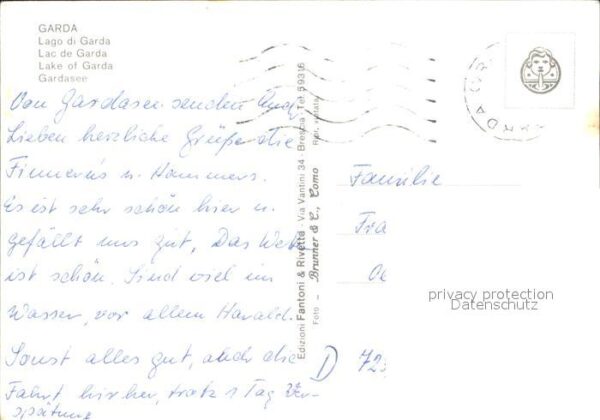 GARDA
Lago di Garda
Lac de Garda
Lake of Garda
Gardasee
Von Gardasee senden Euch
Lieben herzliche Grüße die
Finnern's u. Hammers.
Es ist sehr schön hier u.
gefällt uns gut. Das Wetter
ist schön. Sind viel im
Wasser, vor allem Harald.
Sonst alles gut, auch die
Fahrt hierher, trotz 1 Tag Ver-
spätung
Edizioni Fantoni & Rivetta - Via Vantini 34 - Brescia - Tel. 59316
Foto - Brunner & C., Como Rip. vietata
Familie
Fra
D 72
privacy protection
Datenschutz